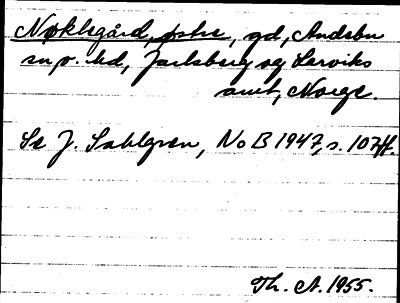 Nøklegård, østre, gd, Andebu
sn, o. hd, Jarlsberg og Larviks
amt, Norge.
Se J. Sahlgren, NoB 1947, s. 107ff.
Th. A. 1955.